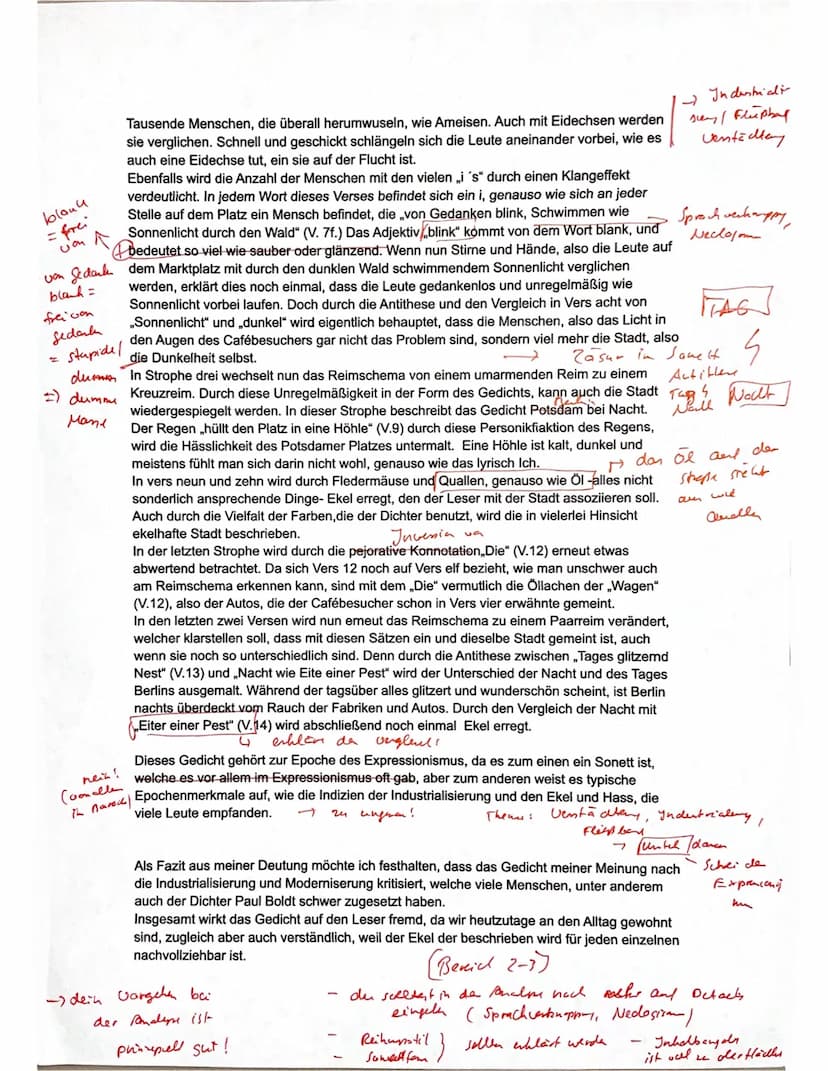 Tausende Menschen, die überall herumwuseln, wie Ameisen. Auch mit Eidechsen werden
sie verglichen. Schnell und geschickt schlängeln sich die Leute aneinander vorbei, wie es
auch eine Eidechse tut, ein sie auf der Flucht ist.
→ Industriali
sierung/ Fließband
Verstädterung
Ebenfalls wird die Anzahl der Menschen mit den vielen „i ´s“ durch einen Klangeffekt
verdeutlicht. In jedem Wort dieses Verses befindet sich ein i, genauso wie sich an jeder
Stelle auf dem Platz ein Mensch befindet, die „von Gedanken blink, Schwimmen wie
Sonnenlicht durch den Wald“ (V. 7f.) Das Adjektiv „blink“ kommt von dem Wort blank, und
bedeutet so viel wie sauber oder glänzend. Wenn nun Stirne und Hände, also die Leute auf
dem Marktplatz mit durch den dunklen Wald schwimmendem Sonnenlicht verglichen
werden, erklärt dies noch einmal, dass die Leute gedankenlos und unregelmäßig wie
Sonnenlicht vorbei laufen. Doch durch die Antithese und den Vergleich in Vers acht von
„Sonnenlicht“ und „dunkel“ wird eigentlich behauptet, dass die Menschen, also das Licht in
den Augen des Cafébesuchers gar nicht das Problem sind, sondern viel mehr die Stadt, also
die Dunkelheit selbst.
blank
= frei
von
von Gedank
blank =
frei von
Gedanken
= stupide/
dumme
=) dumme
Masse
Sprachverknappung,
Neologism
TAG
→ Zäsur in Sonett
Antithese
Tag
Nacht
Nacht
In Strophe drei wechselt nun das Reimschema von einem umarmenden Reim zu einem
Kreuzreim. Durch diese Unregelmäßigkeit in der Form des Gedichts, kann auch die Stadt
Berlin
wiedergespiegelt werden. In dieser Strophe beschreibt das Gedicht Potsdam bei Nacht.
Der Regen „hüllt den Platz in eine Höhle“ (V.9) durch diese Personifiaktion des Regens,
wird die Hässlichkeit des Potsdamer Platzes untermalt. Eine Höhle ist kalt, dunkel und
meistens fühlt man sich darin nicht wohl, genauso wie das lyrisch Ich.
In vers neun und zehn wird durch Fledermäuse und Quallen, genauso wie Öl -alles nicht
sonderlich ansprechende Dinge- Ekel erregt, den der Leser mit der Stadt assoziieren soll.
Auch durch die Vielfalt der Farben,die der Dichter benutzt, wird die in vielerlei Hinsicht
ekelhafte Stadt beschrieben.
→ das Öl auf der
Straße sieht
aus wie
Quallen
Inversion von
In der letzten Strophe wird durch die pejorative Konnotation„Die“ (V.12) erneut etwas
abwertend betrachtet. Da sich Vers 12 noch auf Vers elf bezieht, wie man unschwer auch
am Reimschema erkennen kann, sind mit dem „Die“ vermutlich die Öllachen der „Wagen“
(V.12), also der Autos, die der Cafébesucher schon in Vers vier erwähnte gemeint.
In den letzten zwei Versen wird nun erneut das Reimschema zu einem Paarreim verändert,
welcher klarstellen soll, dass mit diesen Sätzen ein und dieselbe Stadt gemeint ist, auch
wenn sie noch so unterschiedlich sind. Denn durch die Antithese zwischen „Tages glitzernd
Nest“ (V.13) und „Nacht wie Eite einer Pest“ wird der Unterschied der Nacht und des Tages
Berlins ausgemalt. Während der tagsüber alles glitzert und wunderschön scheint, ist Berlin
nachts überdeckt vom Rauch der Fabriken und Autos. Durch den Vergleich der Nacht mit
„Eiter einer Pest“ (V.14) wird abschließend noch einmal Ekel erregt.
↳ erkläre den Vergleich!
Dieses Gedicht gehört zur Epoche des Expressionismus, da es zum einen ein Sonett ist,
welche es vor allem im Expressionismus oft gab, aber zum anderen weist es typische
Epochenmerkmale auf, wie die Indizien der Industrialisierung und den Ekel und Hass, die
viele Leute empfanden.
nein!
(vor allem
in Barock)
→ zu ungenau!
Themen: Verstädterung, Industrialisierung,
Fließband
→
Schrei des
Expressionis
mus
Als Fazit aus meiner Deutung möchte ich festhalten, dass das Gedicht meiner Meinung nach
die Industrialisierung und Moderniserung kritisiert, welche viele Menschen, unter anderem
auch der Dichter Paul Boldt schwer zugesetzt haben.
Insgesamt wirkt das Gedicht auf den Leser fremd, da wir heutzutage an den Alltag gewohnt
sind, zugleich aber auch verständlich, weil der Ekel der beschrieben wird für jeden einzelnen
nachvollziehbar ist.
(Bereich 2-3)
→ dein Vorgehen bei
der Analyse ist
prinzipiell gut!
- du solltest in der Analyse noch mehr auf Details
eingehen (Sprachverknappung, Neologismen)
- Reihungsstil
- Sonettform
sollen erklärt werden
- Inhaltsangabe
ist viel zu oberflächlich